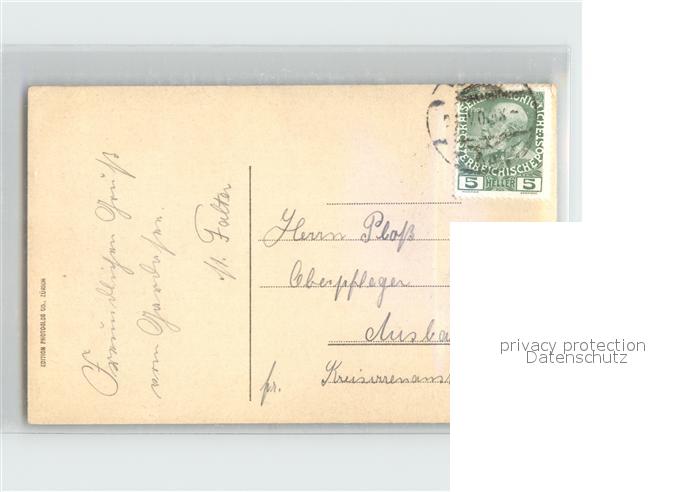 Freundlichen Gruß
vom Gardasee.
M. Falter
EDITION PHOTOGLOB CO., ZÜRICH
KAISERL. KÖNIGL.
ÖSTERREICHISCHE POST
5 HELLER 5
Herrn Ploß
Oberpfleger
Ansba
pr. Kreisirrenanst
privacy protection
Datenschutz